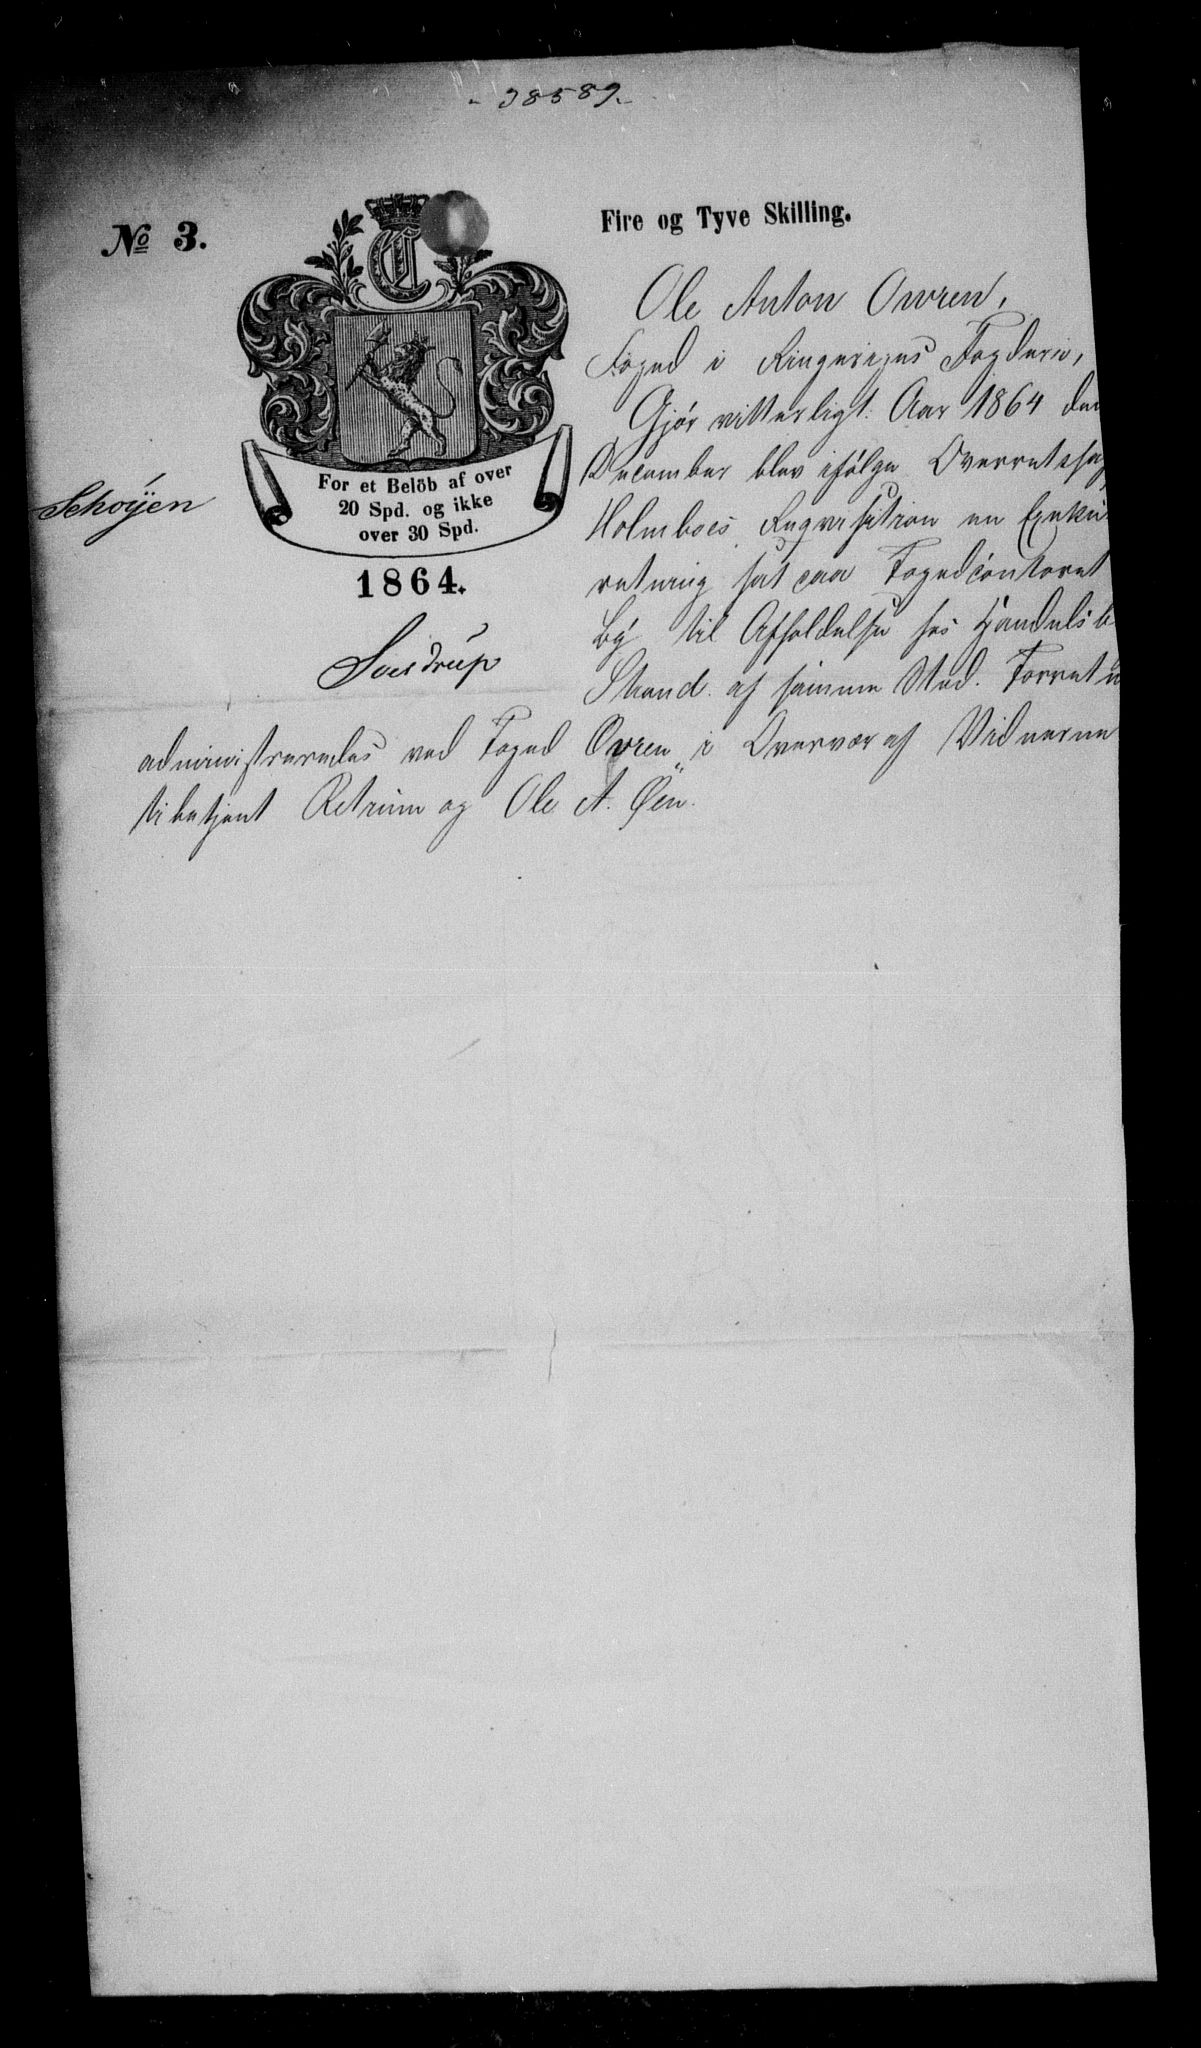 38589.
No 3.
Fire og Tyve Skilling.
For et Belöb af over
20 Spd. og ikke
over 30 Spd.
1864.
Schøyen
Ole Anton Owren,
Foged i Ringeriges Fogderi,
Gjør vitterligt: Aar 1864 den
December blev ifølge Overretssag
Holmboes Reqvisition en Exeku
retning sat paa Fogedcontoret
by til Afholdelse hos Handelsb
Strand af samme Sted. Forretn
administreredes ved Foged Owren i Overvær af Vidnerne
tibetjent Retrum og Ole A. Øen.